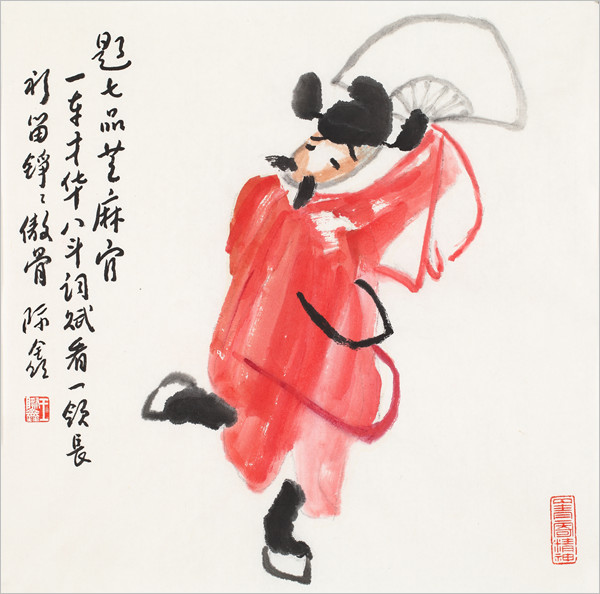 题七品芝麻官
一车才华八斗词赋看一领长
衫留铮〻傲骨 际鑫